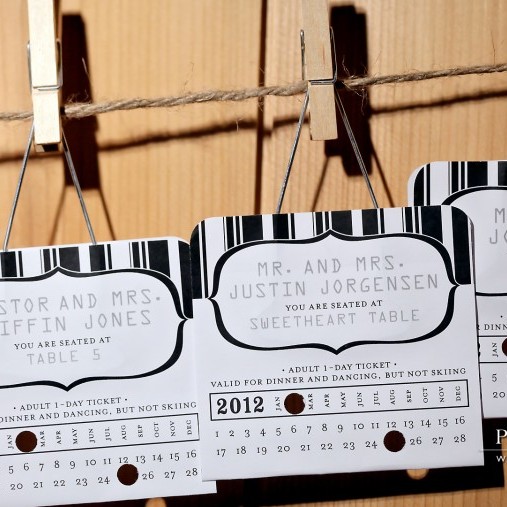 MR. AND MRS.
JUSTIN JORGENSEN
YOU ARE SEATED AT
SWEETHEART TABLE
• ADULT 1-DAY TICKET •
VALID FOR DINNER AND DANCING, BUT NOT SKIING
2012 JAN MAR APR MAY JUN JUL AUG SEP OCT NOV DEC
1 2 3 4 5 6 7 8 9 10 11 12 13 14 15 16
17 18 19 20 21 22 23 25 26 27 28
STOR AND MRS.
IFFIN JONES
YOU ARE SEATED AT
TABLE 5
• ADULT 1-DAY TICKET •
DINNER AND DANCING, BUT NOT SKIING
JAN MAR APR MAY JUN JUL AUG SEP OCT NOV DEC
5 6 7 8 9 10 11 12 13 14 15 16
20 21 22 23 25 26 27 28
M
J
DINNER
JAN
5
20
P
W